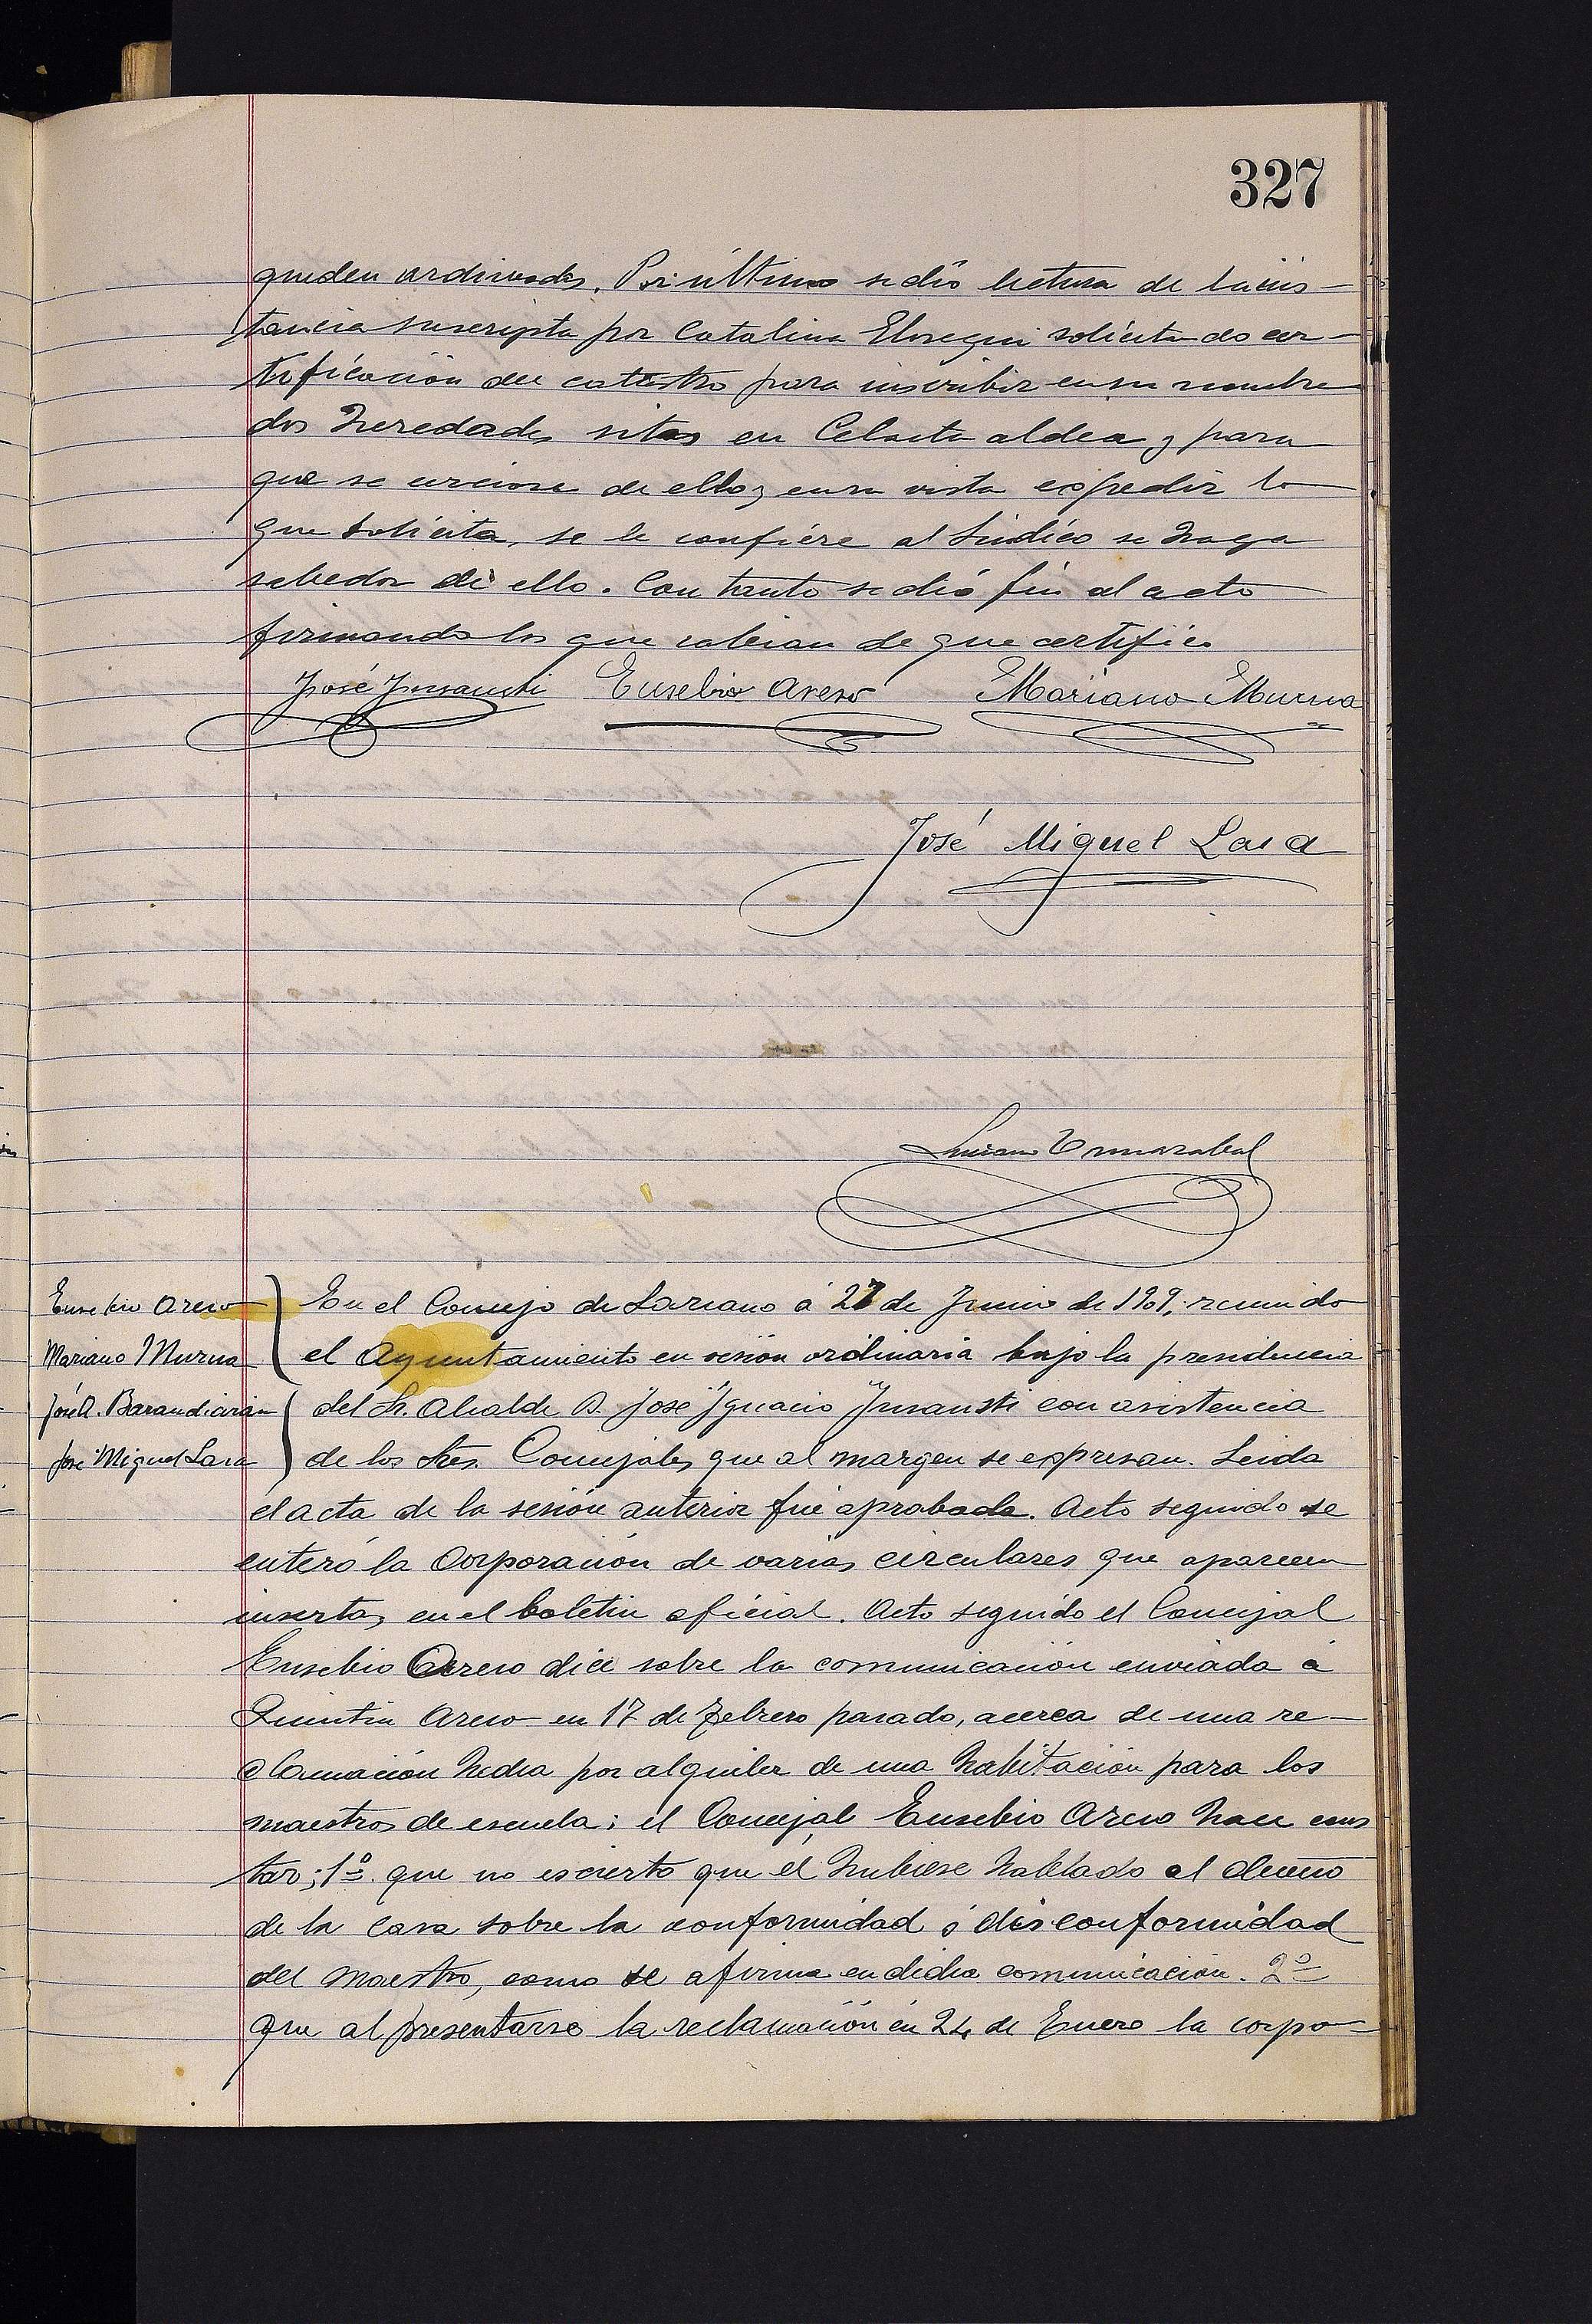 327
queden archivadas. Por último se dió lectura de la ins-
tancia suscripta por Catalina Elosegui solicitando cer-
tificación del catastro para inscribir en su nombre
dos heredades sitas en Celaeta aldea y para
que se cerciore de ello y en su vista expedir lo
que solicita, se le confiere al Síndico se haga
sabedor de ello. Con tanto se dió fin al acto
firmando los que sabian de que certifico
José Insausti Eusebio Areso Mariano Murua
José Miguel Lasa
Luciano
Eusebio Areso
Mariano Murua
José A. Barandiarán
José Miguel Lasa
En el Concejo de Lazcano á 27 de Junio de 1909, reunido
el Ayuntamiento en sesión ordinaria bajo la presidencia
del Sr. Alcalde D. José Ygnacio Insausti con asistencia
de los Sres. Concejales que al margen se expresan. Leida
el acta de la sesión anterior fué aprobada. Acto seguido se
enteró la Corporación de varias circulares que aparecen
insertas en el boletin oficial. Acto seguido el Concejal
Eusebio Areso dice sobre la comunicación enviada á
Quintin Areso en 17 de Febrero pasado, acerca de una re-
clamación hecha por alquiler de una habitación para los
maestros de escuela; el Concejal Eusebio Areso hace cons
tar; 1º que no es cierto que él hubiese hablado al dueño
de la casa sobre la conformidad ó disconformidad
del maestro, como se afirma en dicha comunicación. 2º
que al presentarse la reclamación en 24 de Enero la corpo-